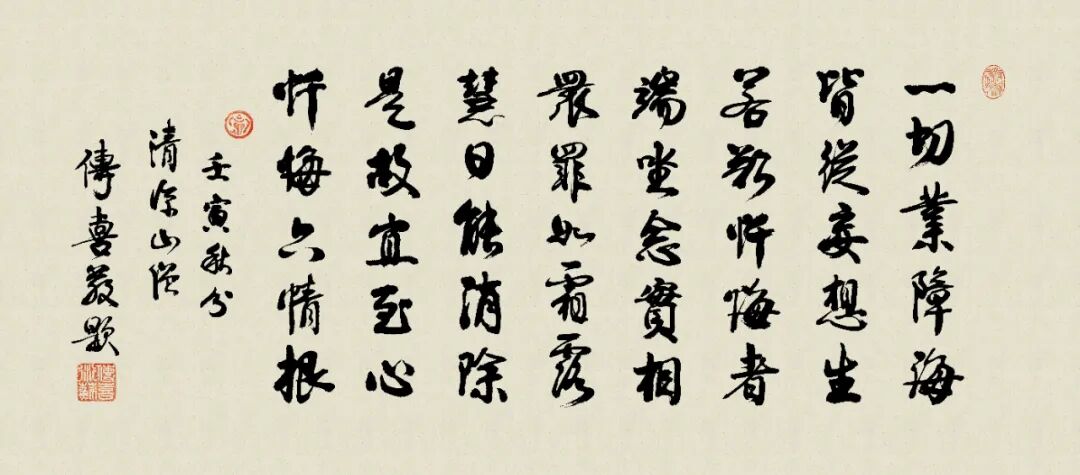 一切業障海
皆從妄想生
若欲忏悔者
端坐念實相
眾罪如霜露
慧日能消除
是故宜至心
忏悔六情根
壬寅秋分
清凉山僧
傳喜敬題